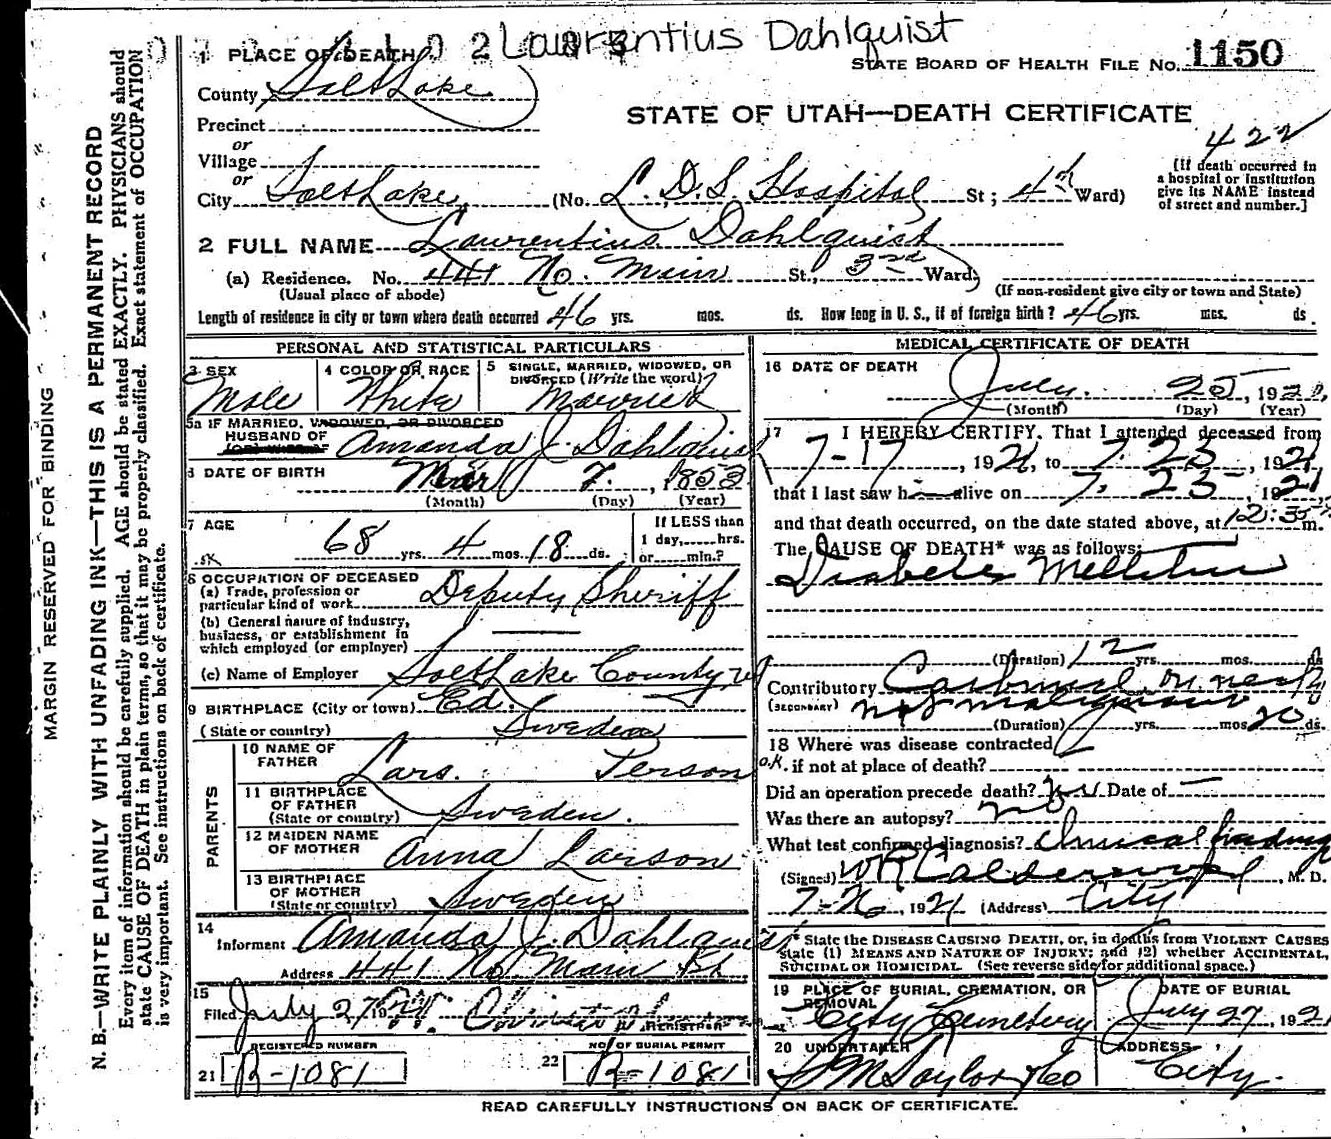 Laurentius Dahlquist
1 PLACE OF DEATH
STATE BOARD OF HEALTH FILE NO. 1150
County Salt Lake
STATE OF UTAH—DEATH CERTIFICATE
Precinct
or
Village
or
City Salt Lake (No. L. D. S. Hospital St; 4th Ward)
422
[If death occurred in
a hospital or institution
give its NAME instead
of street and number.]
2 FULL NAME Laurentius Dahlquist
(a) Residence. No. 441 No. Main St., 3rd Ward,
(Usual place of abode)
(If non-resident give city or town and State)
Length of residence in city or town where death occurred 46 yrs. mos. ds. How long in U. S., if of foreign birth? 46 yrs. mos. ds.
PERSONAL AND STATISTICAL PARTICULARS
3 SEX
Male
4 COLOR OR RACE
White
5 SINGLE, MARRIED, WIDOWED, OR
DIVORCED (Write the word)
Married
5a IF MARRIED, WIDOWED, OR DIVORCED
HUSBAND OF
(OR) WIFE OF
Amanda J. Dahlquist
6 DATE OF BIRTH
Mar 7, 1853
(Month) (Day) (Year)
7 AGE
68 yrs. 4 mos. 18 ds.
If LESS than
1 day,......hrs.
or......min.?
8 OCCUPATION OF DECEASED
(a) Trade, profession or
particular kind of work Deputy Sheriff
(b) General nature of industry,
business, or establishment in
which employed (or employer)
(c) Name of Employer Salt Lake County
9 BIRTHPLACE (City or town) Ed.
(State or country) Sweden
PARENTS
10 NAME OF
FATHER
Lars. Person
11 BIRTHPLACE
OF FATHER
(State or country) Sweden.
12 MAIDEN NAME
OF MOTHER
Anna Larson
13 BIRTHPLACE
OF MOTHER
(State or country) Sweden
14
Informent Amanda J. Dahlquist
Address 441 No Main St
15
Filed July 27 19
REGISTRAR
REGISTERED NUMBER
21 R-1081
NO. OF BURIAL PERMIT
22 R-1081
MEDICAL CERTIFICATE OF DEATH
16 DATE OF DEATH
July 25, 1921
(Month) (Day) (Year)
17 I HEREBY CERTIFY, That I attended deceased from
7-17, 1921, to 7. 25, 1921
that I last saw h alive on 7. 25, 1921
and that death occurred, on the date stated above, at 12:35 m.
The CAUSE OF DEATH* was as follows:
Diabetes Mellitus
(Duration) 12 yrs. mos. ds
Contributory Carbuncle on neck
(SECONDARY) not malignant
(Duration) yrs. mos. 20 ds.
18 Where was disease contracted
o.k. if not at place of death?
Did an operation precede death? No Date of —
Was there an autopsy? no
What test confirmed diagnosis? Clinical findings
(Signed) W R Calderwood, M. D.
7-26, 1921 (Address) City
* State the DISEASE CAUSING DEATH, or, in deaths from VIOLENT CAUSES
state (1) MEANS AND NATURE OF INJURY; and (2) whether ACCIDENTAL,
SUICIDAL OR HOMICIDAL. (See reverse side for additional space.)
19 PLACE OF BURIAL, CREMATION, OR
REMOVAL
City Cemetery
DATE OF BURIAL
July 27, 1921
20 UNDERTAKER
S M Taylor & Co
ADDRESS
City.
READ CAREFULLY INSTRUCTIONS ON BACK OF CERTIFICATE.
MARGIN RESERVED FOR BINDING
N. B.—WRITE PLAINLY WITH UNFADING INK—THIS IS A PERMANENT RECORD
Every item of information should be carefully supplied. AGE should be stated EXACTLY. PHYSICIANS should
state CAUSE OF DEATH in plain terms, so that it may be properly classified. Exact statement of OCCUPATION
is very important. See instructions on back of certificate.